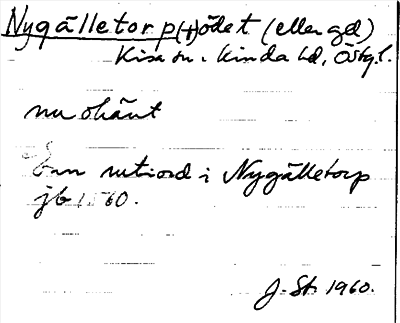 Nygälletorp(+)ödet (eller gd)
Kisa sn. Kinda hd, Östg.l.
nu okänt
Enn utjord i Nygälletorp
jb 1560.
J. St. 1960.